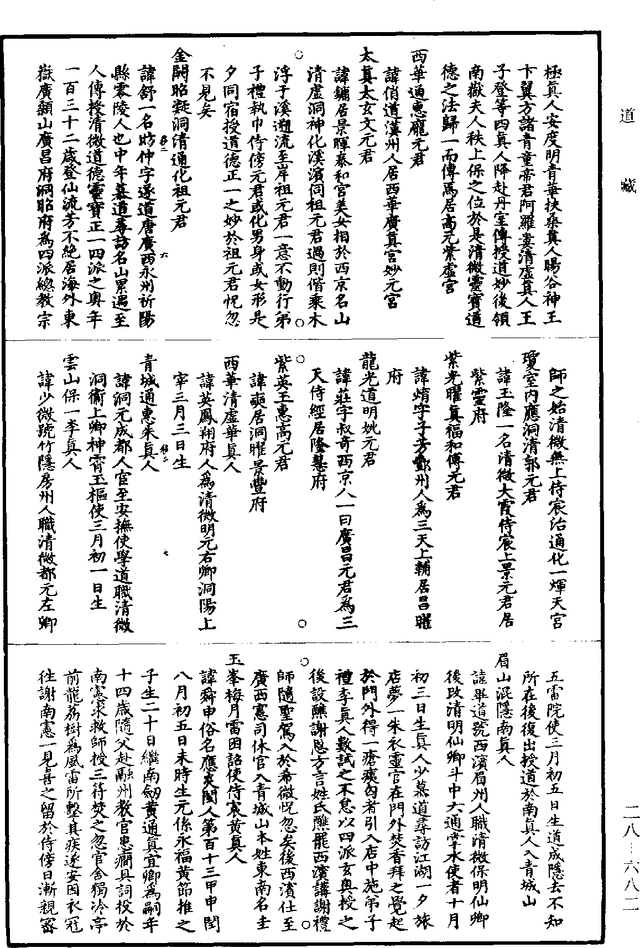 道藏
極真人安度明青華扶桑真人暘谷神王
卞翼方諸青童帝君阿羅婁清虛真人王
子登等四真人降赴丹室傳授道妙後領
南嶽夫人秩上保之位於是清微靈寶道
德之法歸一而傳焉居高元紫虛宮
西華通惠龐元君
諱俏道漢州人居西華廣真宮妙元宮
太真太玄文元君
諱鏞居景暉泰和宮美女相於西京名山
清虛洞神化溪濱伺祖元君過則偕乘木
浮子溪遡流至岸祖元君一意不動行弟
子禮執巾侍傍元君或化男身或女形是
夕同宿授道德正一之妙於祖元君怳忽
不見矣
金闕昭凝洞清通化祖元君
諱舒一名昉仲字遂道唐廣西永州祈陽
縣零陵人也中年慕道尋訪名山累遇至
人傳授清微道德靈寶正一四派之奥年
一百三十二歲登仙流芳不絕居海外東
嶽廣顙山廣昌府洞昭府爲四派總教宗
師之始清微無上侍宸治通化一煇天宮
瓊室內應洞清郭元君
諱玉隆一名清微大霞侍宸上景元君居
紫靈府
紫光曜真福和傅元君
諱焴字子芳鄞州人爲三天上輔居昌曜
府
龍光道明姚元君
諱莊字叔奇西京人一曰廣昌元君爲三
天侍經居隆慧府
紫英玉惠高元君
諱奭居洞曜景豐府
西華清虛華真人
諱英鳳翔府人爲清微明元右卿洞陽上
宰三月三日生
青城通惠朱真人
諱洞元成都人官至安撫使學道職清微
洞衞上卿神霄玉樞使三月初一日生
雲山保一李真人
諱少微號竹隱房州人職清微都元左卿
五雷院使三月初五日生道成隱去不知
所在後復出授道於南真人入青城山
眉山混隱南真人
諱畢道號西濱眉州人職清微保明仙卿
後改清明仙卿斗中六通掌水使者十月
初三日生真人少慕道尋訪江湖一夕旅
店夢一朱衣靈官在門外焚香拜之覺起
於門外得一瘡瘼丐者引入店中施弟子
禮李真人數試之不怠以四派玄奥授之
後設醮謝恩方言姓氏醮罷西濱講謝禮
師隨聖駕入於希微怳忽矣後西濱仕至
廣西憲司休官入青城山本姓東南名圭
玉峯梅月雷困詔使侍宸黄真人
諱舜申俗名應炎閩人第百十三甲申閏
八月初五日未時生元係永福黄節推之
子生二十日繼南劍黄通真宜卿爲嗣年
十四歲隨父赴融州教官患癎具詞投於
南憲求救師授三符焚之忽官舍獨冷亭
前龍荔樹爲風雷所擊其疾遂安因衣冠
往謝南憲一見喜之留於侍傍日漸親密
二八-六八二